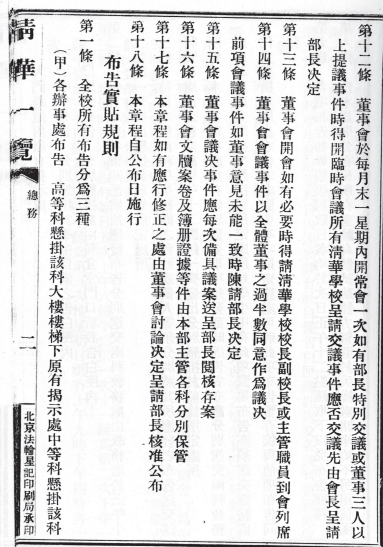 第十二條　董事會於每月末一星期內開常會一次如有部長特別交議或董事三人以
上提議事件時得開臨時會議所有清華學校呈請交議事件應否交議先由會長呈請
部長决定
第十三條　董事會開會如有必要時得請清華學校校長副校長或主管職員到會列席
第十四條　董事會會議事件以全體董事之過半數同意作爲議决
前項會議事件如董事意見未能一致時陳請部長决定
第十五條　董事會議决事件應每次備具議案送呈部長閱核存案
第十六條　董事會文牘案卷及簿册證據等件由本部主管各科分別保管
第十七條　本章程如有應行修正之處由董事會討論决定呈請部長核准公布
第十八條　本章程自公布日施行
布告實貼規則
第一條　全校所有布告分爲三種
（甲）各辦事處布告　高等科懸掛該科大樓樓梯下原有揭示處中等科懸掛該科
清華一覽
總務
二
北京法輪星記印刷局承印